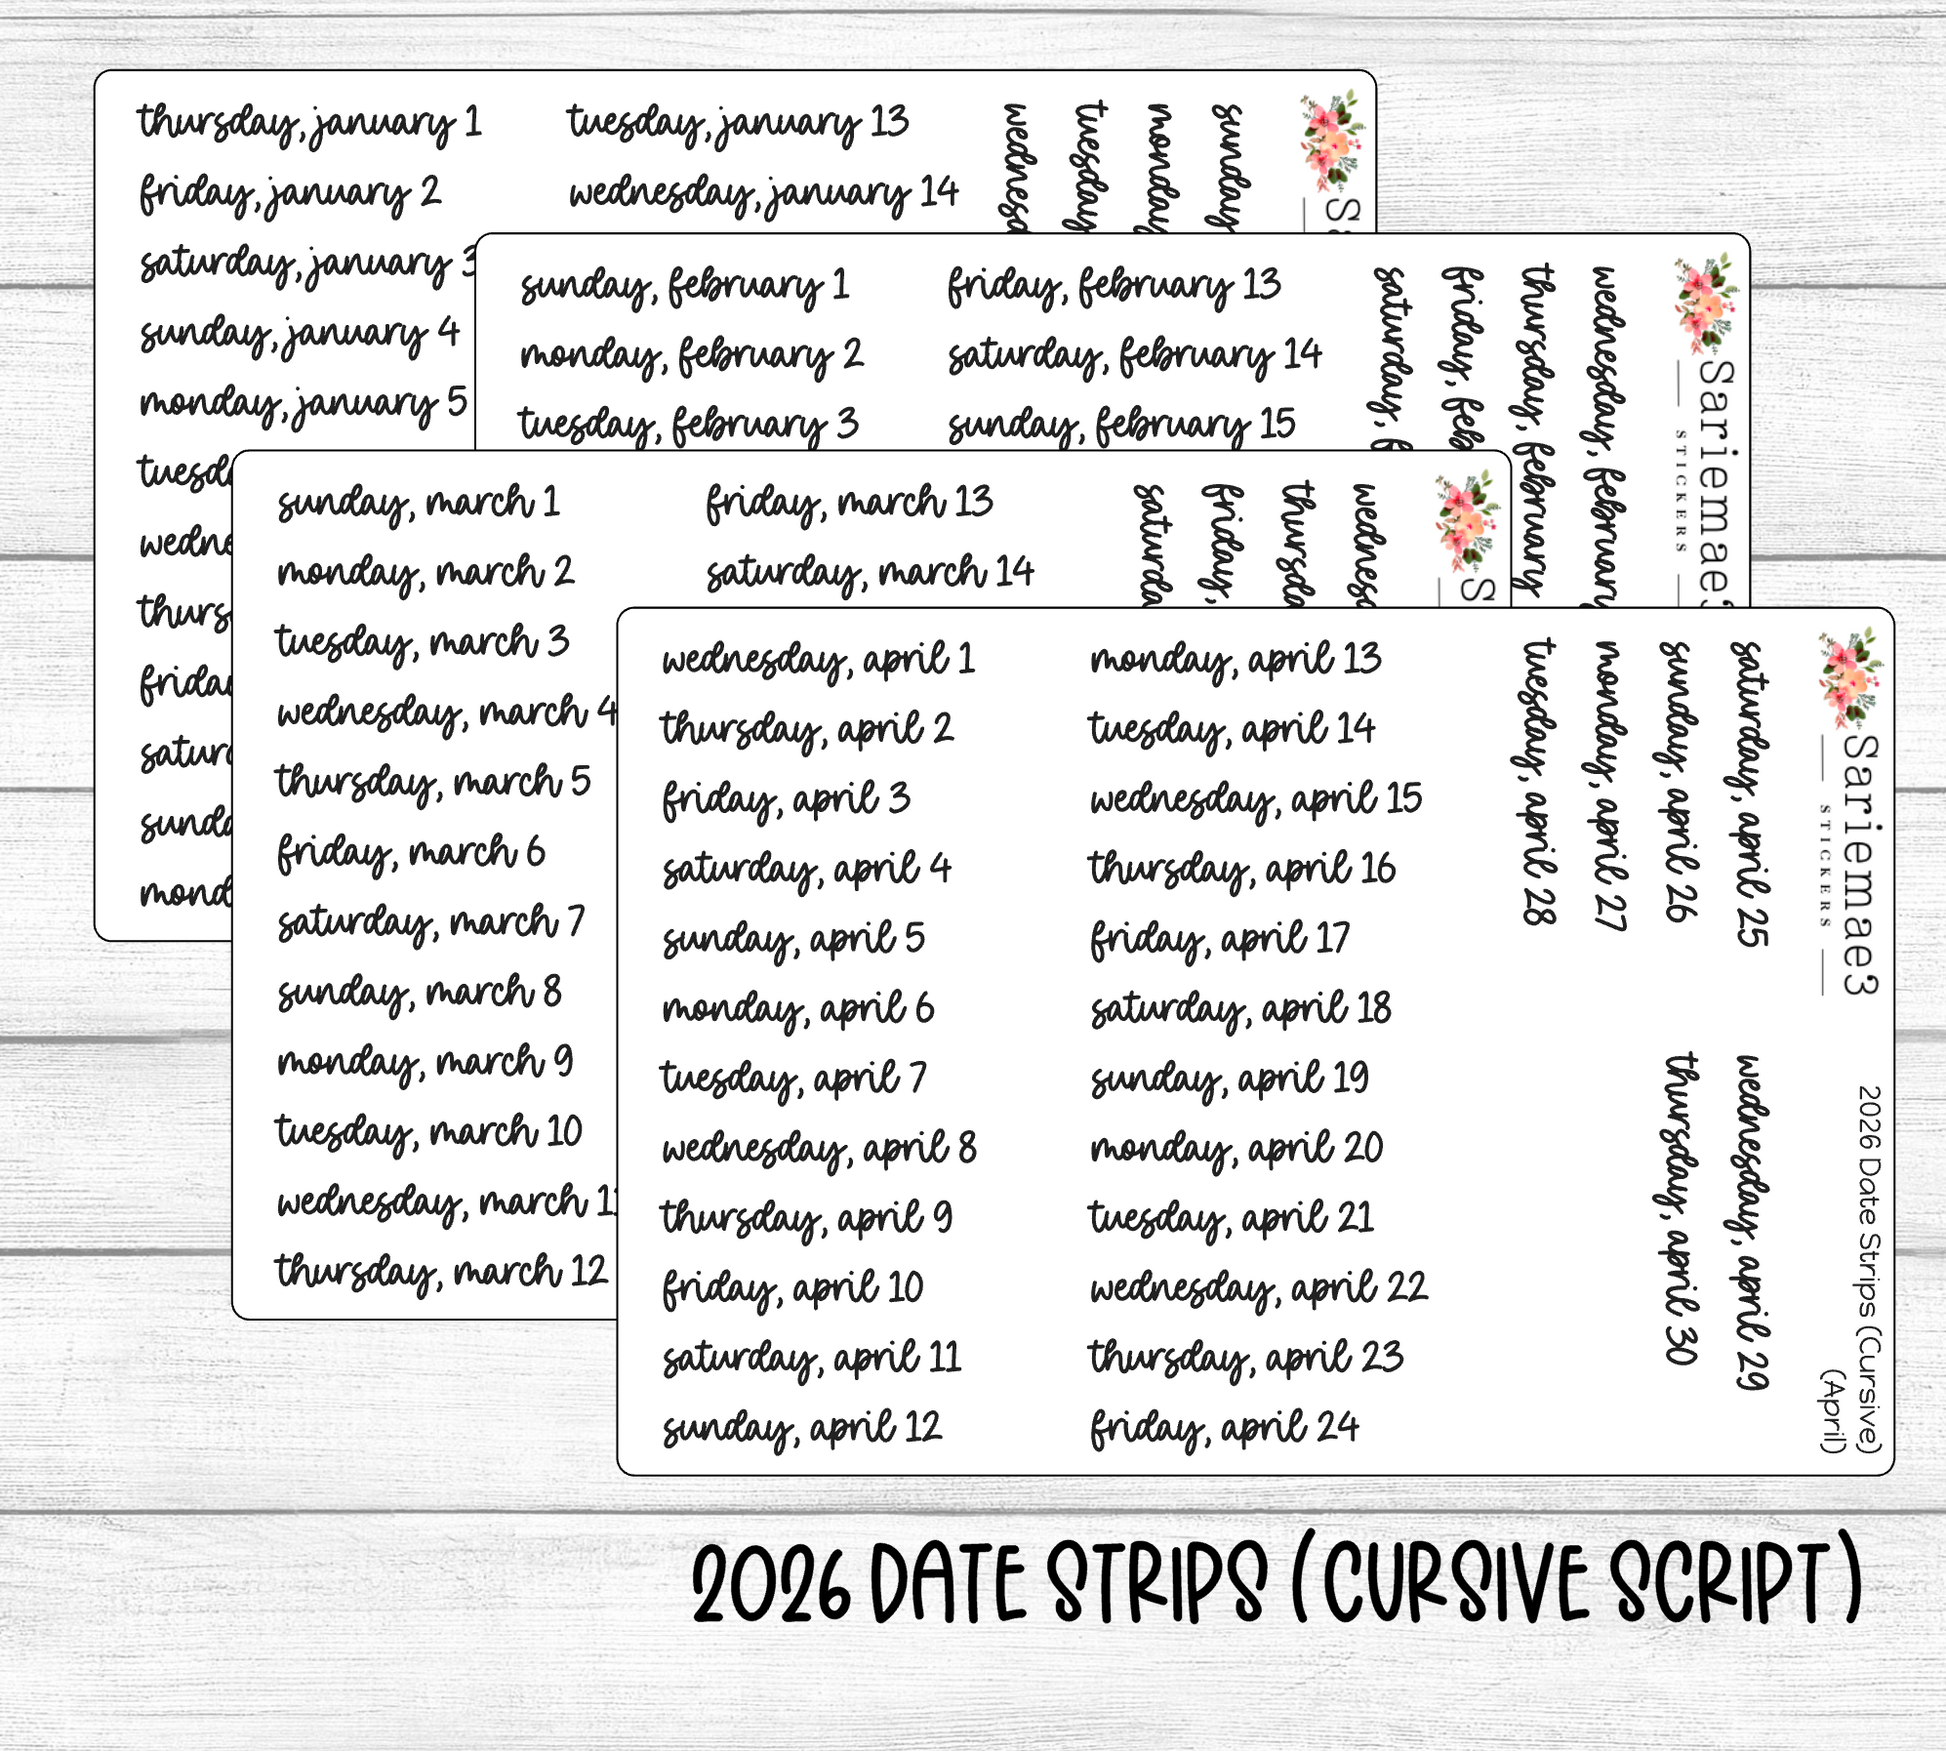 thursday, january 1
friday, january 2
saturday, january 3
sunday, january 4
monday, january 5
tuesday, january 13
wednesday, january 14
tuesday
monday
sunday
sunday, february 1
monday, february 2
tuesday, february 3
friday, february 13
saturday, february 14
sunday, february 15
saturday,
friday, feb
thursday, february
wednesday, february
Sariemae3
STICKERS
sunday, march 1
monday, march 2
tuesday, march 3
wednesday, march 4
thursday, march 5
friday, march 6
saturday, march 7
sunday, march 8
monday, march 9
tuesday, march 10
wednesday, march 11
thursday, march 12
friday, march 13
saturday, march 14
friday,
wednesday, april 1
thursday, april 2
friday, april 3
saturday, april 4
sunday, april 5
monday, april 6
tuesday, april 7
wednesday, april 8
thursday, april 9
friday, april 10
saturday, april 11
sunday, april 12
monday, april 13
tuesday, april 14
wednesday, april 15
thursday, april 16
friday, april 17
saturday, april 18
sunday, april 19
monday, april 20
tuesday, april 21
wednesday, april 22
thursday, april 23
friday, april 24
saturday, april 25
sunday, april 26
monday, april 27
tuesday, april 28
wednesday, april 29
thursday, april 30
Sariemae3
STICKERS
2026 Date Strips (Cursive)
(April)
2026 DATE STRIPS (CURSIVE SCRIPT)